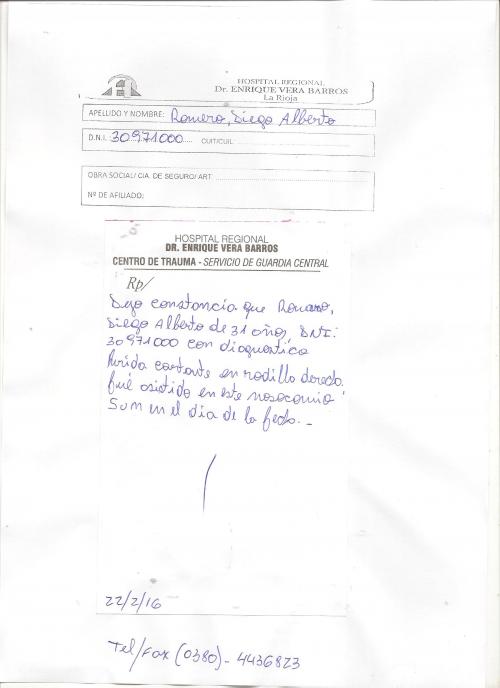 HOSPITAL REGIONAL
Dr. ENRIQUE VERA BARROS
La Rioja
APELLIDO Y NOMBRE: Romero, Diego Alberto
D.N.I. 30971000 CUIT/CUIL:
OBRA SOCIAL/ CIA. DE SEGURO/ ART:
Nº DE AFILIADO:
HOSPITAL REGIONAL
DR. ENRIQUE VERA BARROS
CENTRO DE TRAUMA - SERVICIO DE GUARDIA CENTRAL
Rp/
Dejo constancia que Romero,
Diego Alberto de 31 años, DNI:
30971000 con diagnostico
herida cortante en rodilla derecha
fué asistido en este nosocomio
en el dia de la fecha. _
22/2/16
Tel/Fax (0380) - 4436823